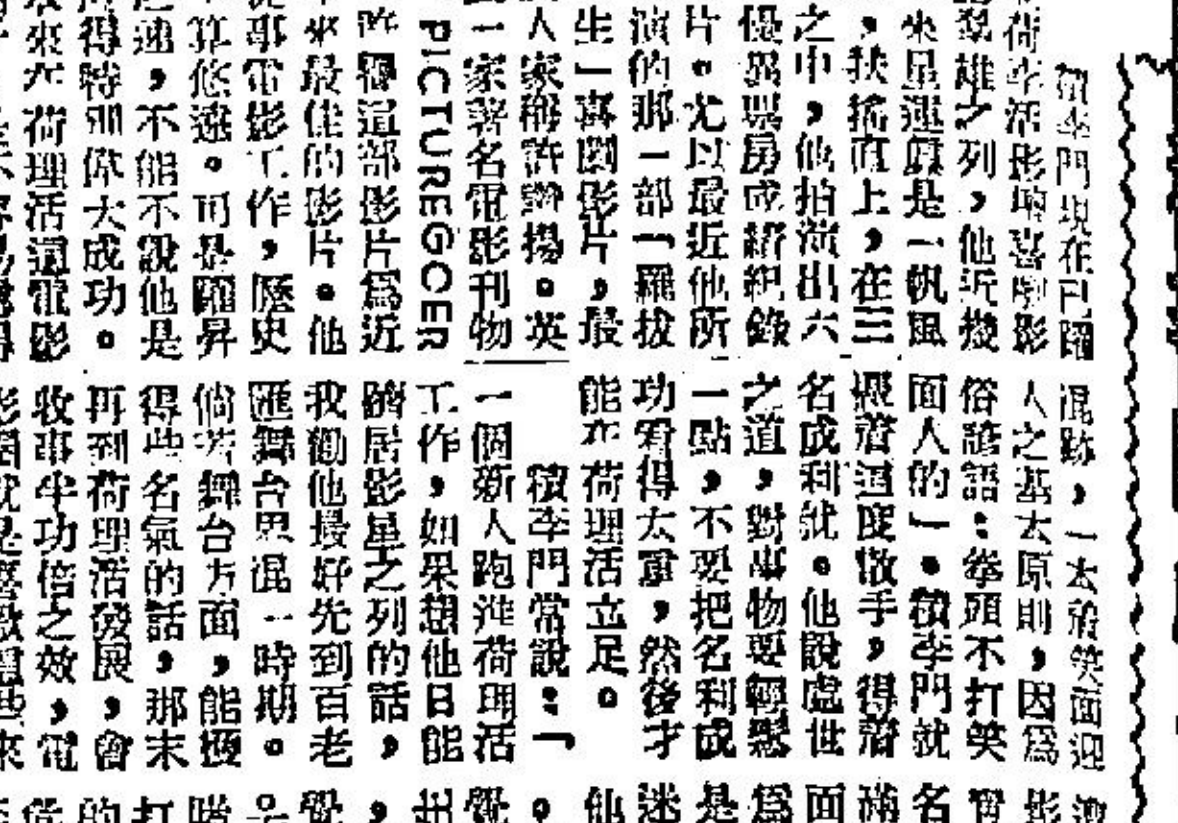 積李門現在已躍
荷李活影壇喜劇影
雄之列，他近幾
來星運眞是一帆風
，扶搖直上，在三
之中，他拍演出六
優異票房成績紀錄
片。尤以最近他所
演的那一部「羅拔
生」喜劇影片，最
人家稱許讚揚。英
一家著名電影刊物
PICTUREGOER
許道部影片爲近
來最佳的影片。他
事電影工作，歷史
算悠遠。可是躍昇
速，不能不說他是
得特別偉大成功。
來在荷理活這電影
混跡，笑面迎
人之基本原則，因爲
俗諺語：拳頭不打笑
面人的」。積李門就
憑着這度散手，得着
名成利就。他說處世
之道，對事物要輕鬆
一點，不要把名利成
功看得太重，然後才
能在荷理活立足。
積李門常說：「
一個新人跑進荷理活
工作，如果想他日能
躋居影星之列的話，
我勸他最好先到百老
匯舞台界混一時期。
倘若舞台方面，能獲
得些名氣的話，那末
再到荷理活發展，會
收事半功倍之效，電